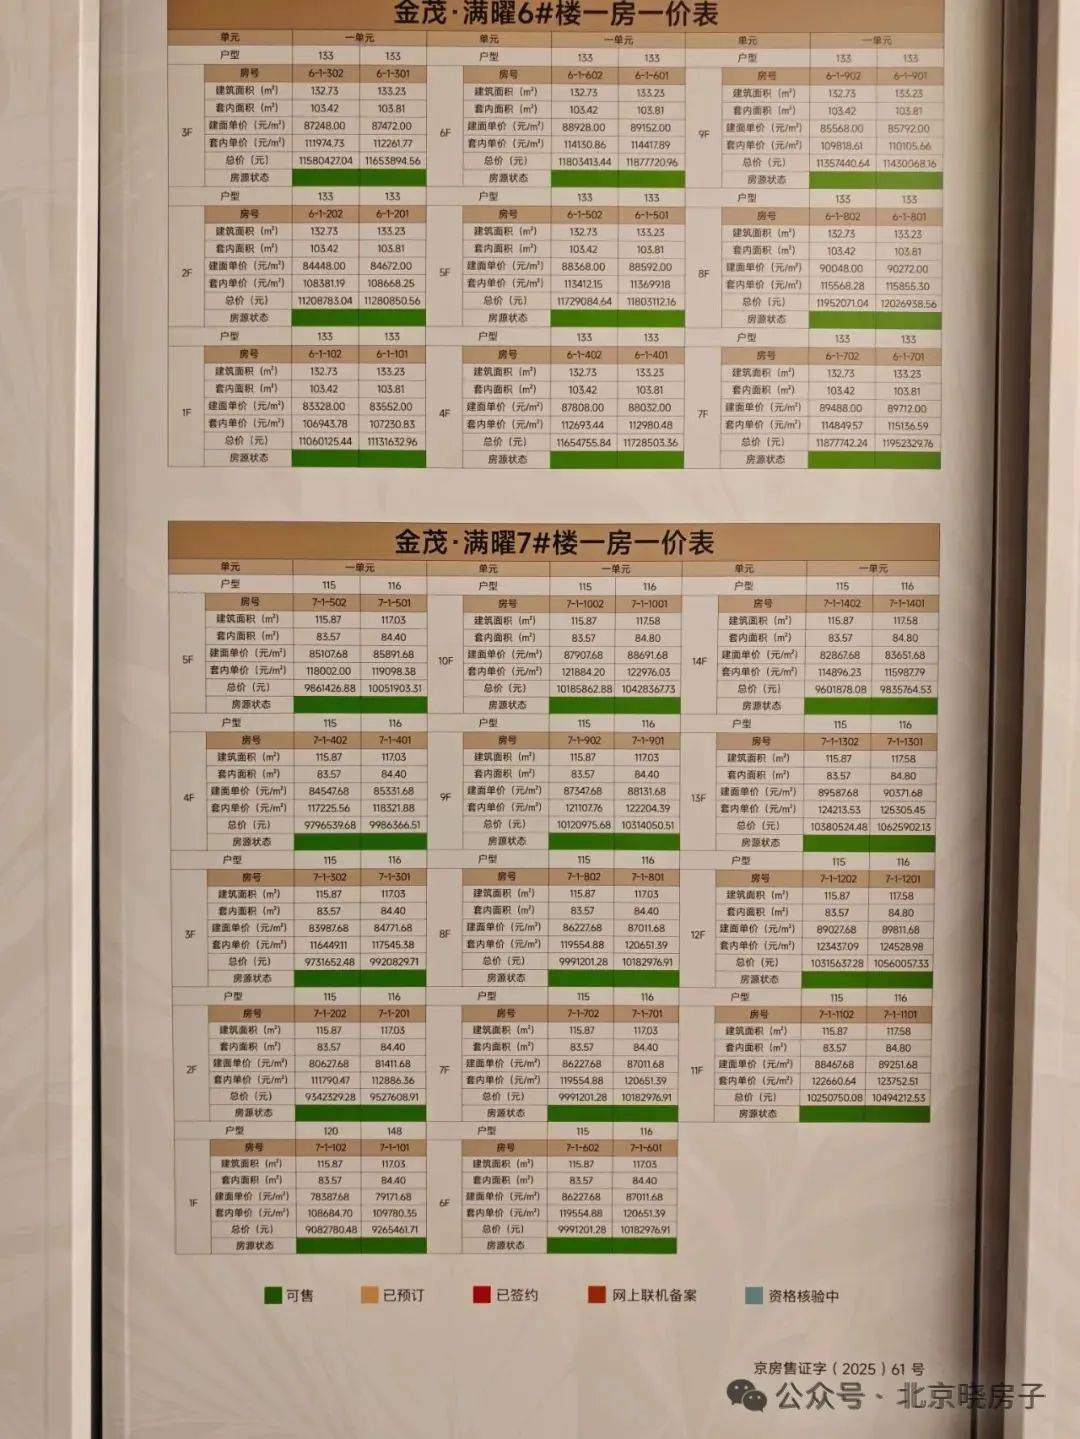 金茂·满曜6#楼一房一价表
单元 一单元 单元 一单元 单元 一单元
户型 133 133 户型 133 133 户型 133 133
3F 房号 6-1-302 6-1-301 6F 房号 6-1-602 6-1-601 9F 房号 6-1-902 6-1-901
建筑面积（m²） 132.73 133.23 建筑面积（m²） 132.73 133.23 建筑面积（m²） 132.73 133.23
套内面积（m²） 103.42 103.81 套内面积（m²） 103.42 103.81 套内面积（m²） 103.42 103.81
建面单价（元/m²） 87248.00 87472.00 建面单价（元/m²） 88928.00 89152.00 建面单价（元/m²） 85568.00 85792.00
套内单价（元/m²） 111974.73 112261.77 套内单价（元/m²） 114130.86 114417.89 套内单价（元/m²） 109818.61 110105.66
总价（元） 11580427.04 11653894.56 总价（元） 11803413.44 11877720.96 总价（元） 11357440.64 11430068.16
房源状态 房源状态 房源状态
户型 133 133 户型 133 133 户型 133 133
2F 房号 6-1-202 6-1-201 5F 房号 6-1-502 6-1-501 8F 房号 6-1-802 6-1-801
建筑面积（m²） 132.73 133.23 建筑面积（m²） 132.73 133.23 建筑面积（m²） 132.73 133.23
套内面积（m²） 103.42 103.81 套内面积（m²） 103.42 103.81 套内面积（m²） 103.42 103.81
建面单价（元/m²） 84448.00 84672.00 建面单价（元/m²） 88368.00 88592.00 建面单价（元/m²） 90048.00 90272.00
套内单价（元/m²） 108381.19 108668.25 套内单价（元/m²） 113412.15 113699.18 套内单价（元/m²） 115568.28 115855.30
总价（元） 11208783.04 11280850.56 总价（元） 11729084.64 11803112.16 总价（元） 11952071.04 12026938.56
房源状态 房源状态 房源状态
户型 133 133 户型 133 133 户型 133 133
1F 房号 6-1-102 6-1-101 4F 房号 6-1-402 6-1-401 7F 房号 6-1-702 6-1-701
建筑面积（m²） 132.73 133.23 建筑面积（m²） 132.73 133.23 建筑面积（m²） 132.73 133.23
套内面积（m²） 103.42 103.81 套内面积（m²） 103.42 103.81 套内面积（m²） 103.42 103.81
建面单价（元/m²） 83328.00 83552.00 建面单价（元/m²） 87808.00 88032.00 建面单价（元/m²） 89488.00 89712.00
套内单价（元/m²） 106943.78 107230.83 套内单价（元/m²） 112693.44 112980.48 套内单价（元/m²） 114849.57 115136.59
总价（元） 11060125.44 11131632.96 总价（元） 11654755.84 11728503.36 总价（元） 11877742.24 11952329.76
房源状态 房源状态 房源状态
金茂·满曜7#楼一房一价表
单元 一单元 单元 一单元 单元 一单元
户型 115 116 户型 115 116 户型 115 116
5F 房号 7-1-502 7-1-501 10F 房号 7-1-1002 7-1-1001 14F 房号 7-1-1402 7-1-1401
建筑面积（m²） 115.87 117.03 建筑面积（m²） 115.87 117.58 建筑面积（m²） 115.87 117.58
套内面积（m²） 83.57 84.40 套内面积（m²） 83.57 84.80 套内面积（m²） 83.57 84.80
建面单价（元/m²） 85107.68 85891.68 建面单价（元/m²） 87907.68 88691.68 建面单价（元/m²） 82867.68 83651.68
套内单价（元/m²） 118002.00 119098.38 套内单价（元/m²） 121884.20 122976.03 套内单价（元/m²） 114896.23 115987.79
总价（元） 9861426.88 10051903.31 总价（元） 10185862.88 10428367.73 总价（元） 9601878.08 9835764.53
房源状态 房源状态 房源状态
户型 115 116 户型 115 116 户型 115 116
4F 房号 7-1-402 7-1-401 9F 房号 7-1-902 7-1-901 13F 房号 7-1-1302 7-1-1301
建筑面积（m²） 115.87 117.03 建筑面积（m²） 115.87 117.03 建筑面积（m²） 115.87 117.58
套内面积（m²） 83.57 84.40 套内面积（m²） 83.57 84.40 套内面积（m²） 83.57 84.80
建面单价（元/m²） 84547.68 85331.68 建面单价（元/m²） 87347.68 88131.68 建面单价（元/m²） 89587.68 90371.68
套内单价（元/m²） 117225.56 118321.88 套内单价（元/m²） 121107.76 122204.39 套内单价（元/m²） 124213.53 125305.45
总价（元） 9796539.68 9986366.51 总价（元） 10120975.68 10314050.51 总价（元） 10380524.48 10625902.13
房源状态 房源状态 房源状态
户型 115 116 户型 115 116 户型 115 116
3F 房号 7-1-302 7-1-301 8F 房号 7-1-802 7-1-801 12F 房号 7-1-1202 7-1-1201
建筑面积（m²） 115.87 117.03 建筑面积（m²） 115.87 117.03 建筑面积（m²） 115.87 117.58
套内面积（m²） 83.57 84.40 套内面积（m²） 83.57 84.40 套内面积（m²） 83.57 84.80
建面单价（元/m²） 83987.68 84771.68 建面单价（元/m²） 86227.68 87011.68 建面单价（元/m²） 89027.68 89811.68
套内单价（元/m²） 116449.11 117545.38 套内单价（元/m²） 119554.88 120651.39 套内单价（元/m²） 123437.09 124528.98
总价（元） 9731652.48 9920829.71 总价（元） 9991201.28 10182976.91 总价（元） 10315637.28 10560057.33
房源状态 房源状态 房源状态
户型 115 116 户型 115 116 户型 115 116
2F 房号 7-1-202 7-1-201 7F 房号 7-1-702 7-1-701 11F 房号 7-1-1102 7-1-1101
建筑面积（m²） 115.87 117.03 建筑面积（m²） 115.87 117.03 建筑面积（m²） 115.87 117.58
套内面积（m²） 83.57 84.40 套内面积（m²） 83.57 84.40 套内面积（m²） 83.57 84.80
建面单价（元/m²） 80627.68 81411.68 建面单价（元/m²） 86227.68 87011.68 建面单价（元/m²） 88467.68 89251.68
套内单价（元/m²） 111790.47 112886.36 套内单价（元/m²） 119554.88 120651.39 套内单价（元/m²） 122660.64 123752.51
总价（元） 9342329.28 9527608.91 总价（元） 9991201.28 10182976.91 总价（元） 10250750.08 10494212.53
房源状态 房源状态 房源状态
户型 120 148 户型 115 116
1F 房号 7-1-102 7-1-101 6F 房号 7-1-602 7-1-601
建筑面积（m²） 115.87 117.03 建筑面积（m²） 115.87 117.03
套内面积（m²） 83.57 84.40 套内面积（m²） 83.57 84.40
建面单价（元/m²） 78387.68 79171.68 建面单价（元/m²） 86227.68 87011.68
套内单价（元/m²） 108684.70 109780.35 套内单价（元/m²） 119554.88 120651.39
总价（元） 9082780.48 9265461.71 总价（元） 9991201.28 10182976.91
房源状态 房源状态
可售 已预订 已签约 网上联机备案 资格核验中
京房售证字（2025）61号
公众号·北京晓房子